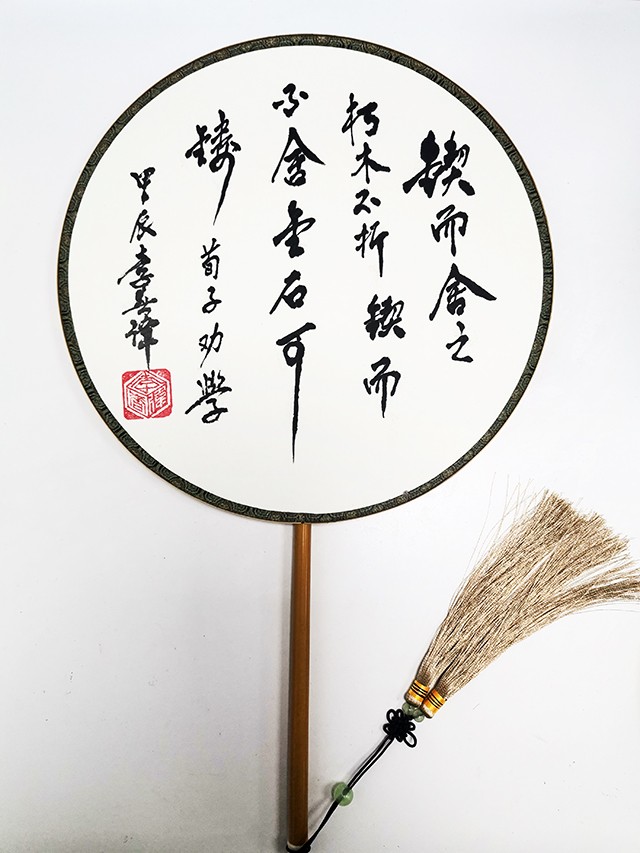 鍥而舍之
朽木不折鍥而
不舍金石可
鏤
荀子劝學
甲辰李